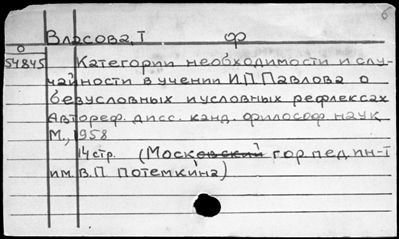 б
Власова, Т ф
О
54845 Категории необходимости и слу-
чайности в учении И.П.Павлова о
безусловных и условных рефлексах
Автореф. дисс. канд. философ наук
М., 1958
14 стр. (Московский гор пед. ин-т
им. В.П. Потемкина)